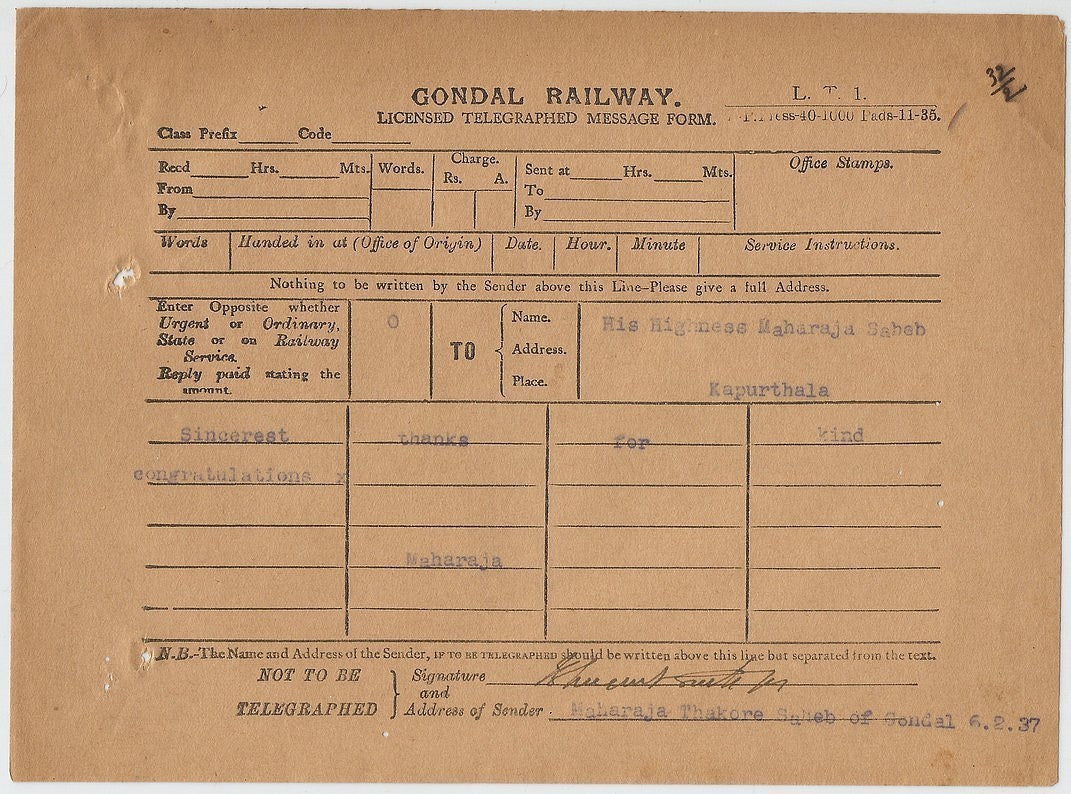 32/2
GONDAL RAILWAY.
L. T. 1.
LICENSED TELEGRAPHED MESSAGE FORM.
-40-1000 Pads-11-35.
Class Prefix Code
Recd Hrs. Mts.
From
By
Words.
Charge.
Rs. A.
Sent at Hrs. Mts.
To
By
Office Stamps.
Words Handed in at (Office of Origin) Date. Hour. Minute Service Instructions.
Nothing to be written by the Sender above this Line-Please give a full Address.
Enter Opposite whether
Urgent or Ordinary,
State or on Railway
Service.
Reply paid stating the
amount.
O
TO
Name.
Address.
Place.
His Highness Maharaja Saheb
Kapurthala
Sincerest thanks for kind
congratulations x
Maharaja
N.B.-The Name and Address of the Sender, IF TO BE TELEGRAPHED should be written above this line but separated from the text.
NOT TO BE
TELEGRAPHED
Signature
and
Address of Sender
Maharaja Thakore Saheb of Gondal 6.2.37